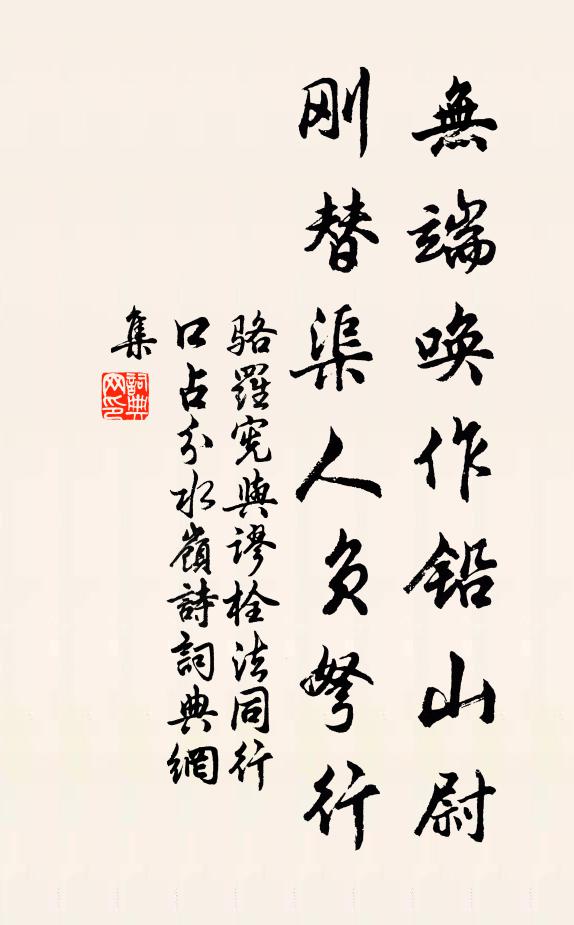 無端喚作鉛山尉
刚替渠人負弩行
骆羅宪與謬栓法同行
口占分水嶺詩詞典網
集
詞典
网印